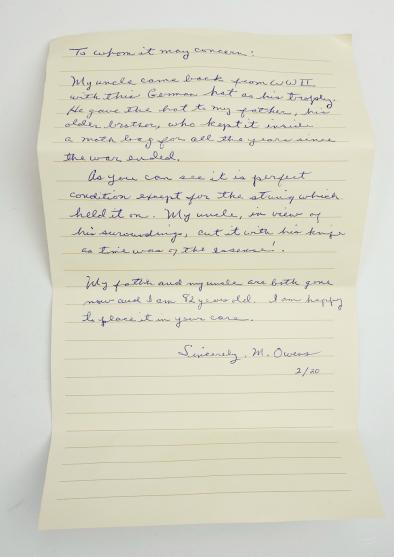 To whom it may concern:
My uncle came back from WWII
with this German hat as his trophy.
He gave the hat to my father, his
older brother, who kept it inside
a moth bag for all the years since
the war ended.
As you can see it is perfect
condition except for the string which
held it on. My uncle, in view of
his suroundings, cut it with his knife
as time was of the essense!.
My father and my uncle are both gone
now and I am 82 years old. I am happy
to place it in your care.
Sincerely, M. Owens
2/20